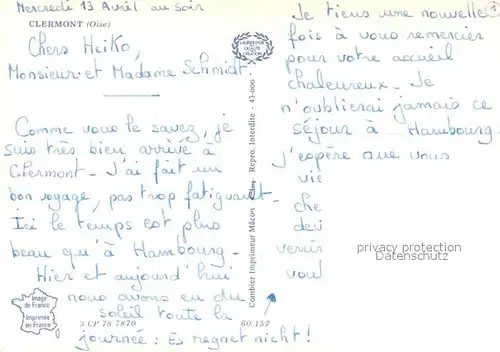 Mercredi 13 Avril au soir
CLERMONT (Oise)
Chers Heiko,
Monsieur et Madame Schmidt.
Comme vous le savez, je
suis très bien arrivé à
Clermont - J'ai fait un
bon voyage, pas trop fatiguant -
Ici le temps est plus
beau qu'à Hambourg -
Hier et aujourd'hui
nous avons eu du
soleil toute la
journée : Es regnet nicht !
Image
de France
Imprimée
en France
3 CP 78 7870
60.157
Combier Imprimeur Mâcon Repro. Interdite - 43-000
1
Je tiens une nouvelle
fois à vous remercier
pour votre accueil
chaleureux - Je
n'oublierai jamais ce
séjour à Hambourg.
J'espère que vous
vie
che
dev
venir
vou
privacy protection
Datenschutz